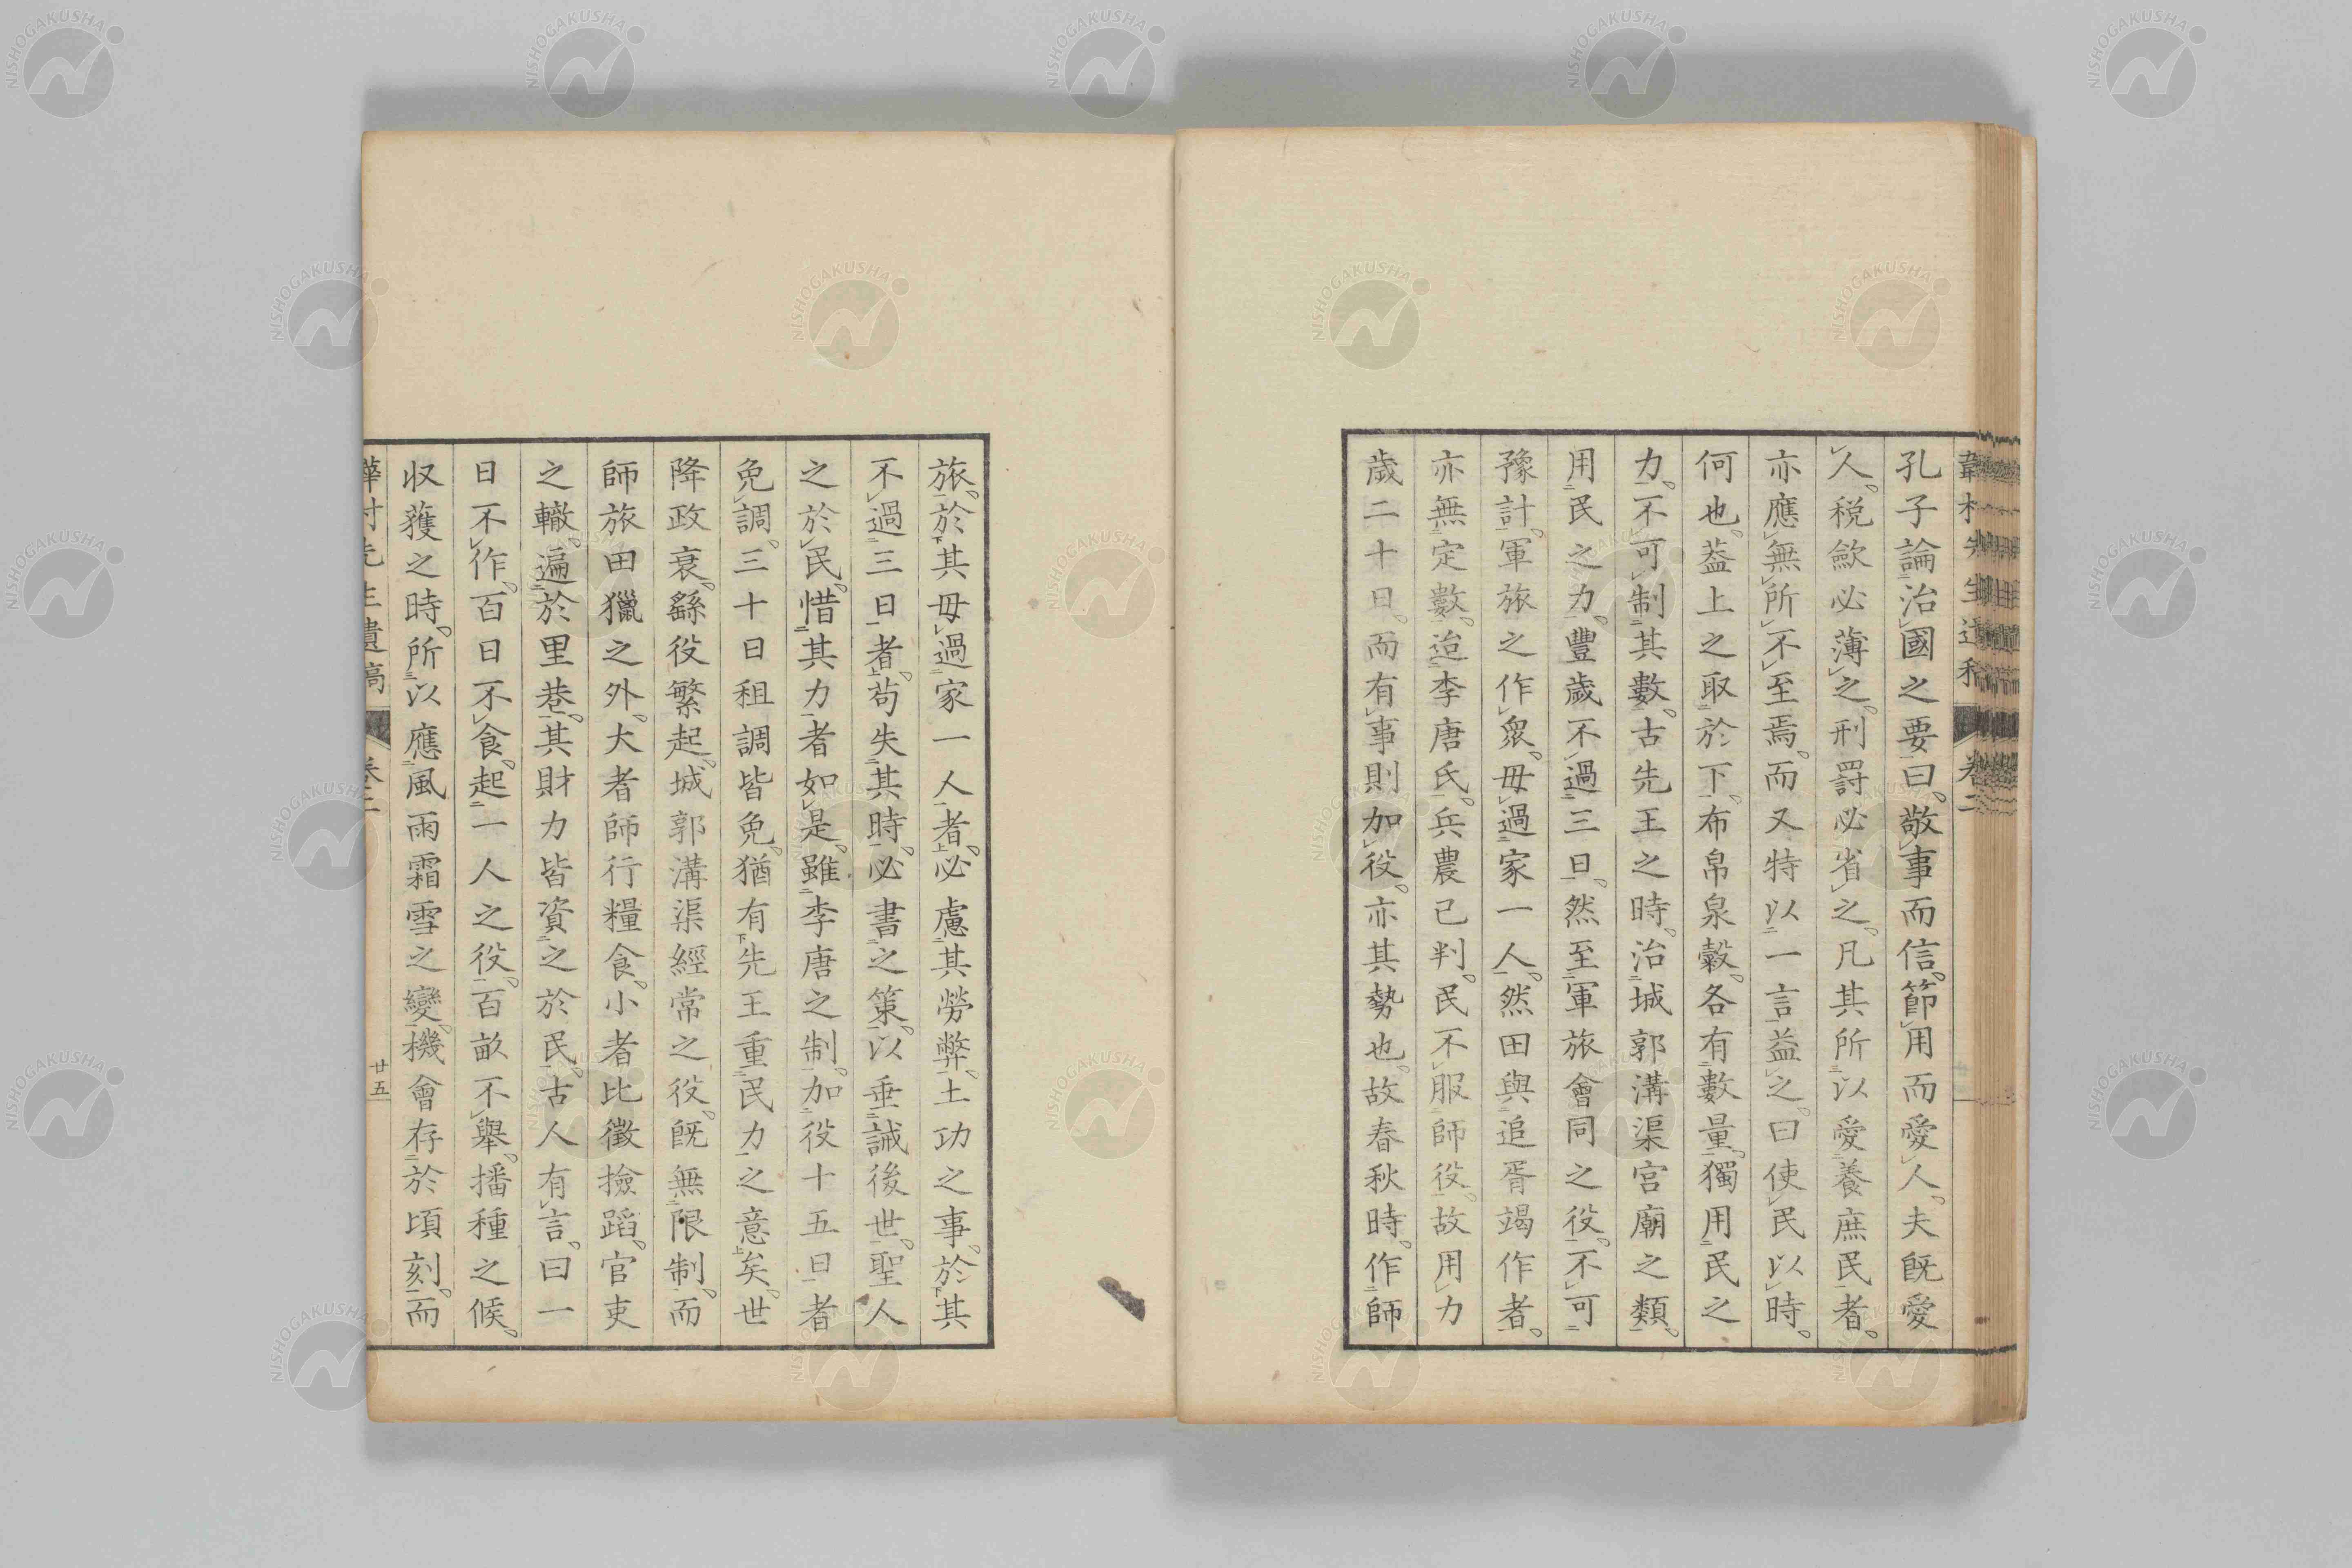 孔子論治國之要曰敬事而信節用而愛人夫既愛
人税斂必薄之刑罰必省之凡其所以愛養庶民者
亦應無所不至焉而又特以一言益之曰使民以時
何也葢上之取於下布帛泉穀各有數量獨用民之
力不可制其數古先王之時治城郭溝渠宮廟之類
用民之力豐歲不過三日然至軍旅會同之役不可
豫計軍旅之作衆毋過家一人然田與追胥竭作者
亦無定數迨李唐氏兵農已判民不服師役故用力
歲二十日而有事則加役亦其勢也故春秋時作師
旅於其毋過家一人者必慮其勞弊土功之事於其
不過三日者苟失其時必書之策以垂誡後世聖人
之於民惜其力者如是雖李唐之制加役十五日者
免調三十日租調皆免猶有先王重民力之意矣世
降政衰繇役繁起城郭溝渠經常之役既無限制而
師旅田獵之外大者師行糧食小者比徵撿蹈官吏
之轍遍於里巷其財力皆資之於民古人有言曰一
日不作百日不食起一人之役百畝不舉播種之候
収穫之時所以應風雨霜雪之變機會存於頃刻而
韡村先生遺稿
卷二
廿五
NISHOGAKUSHA